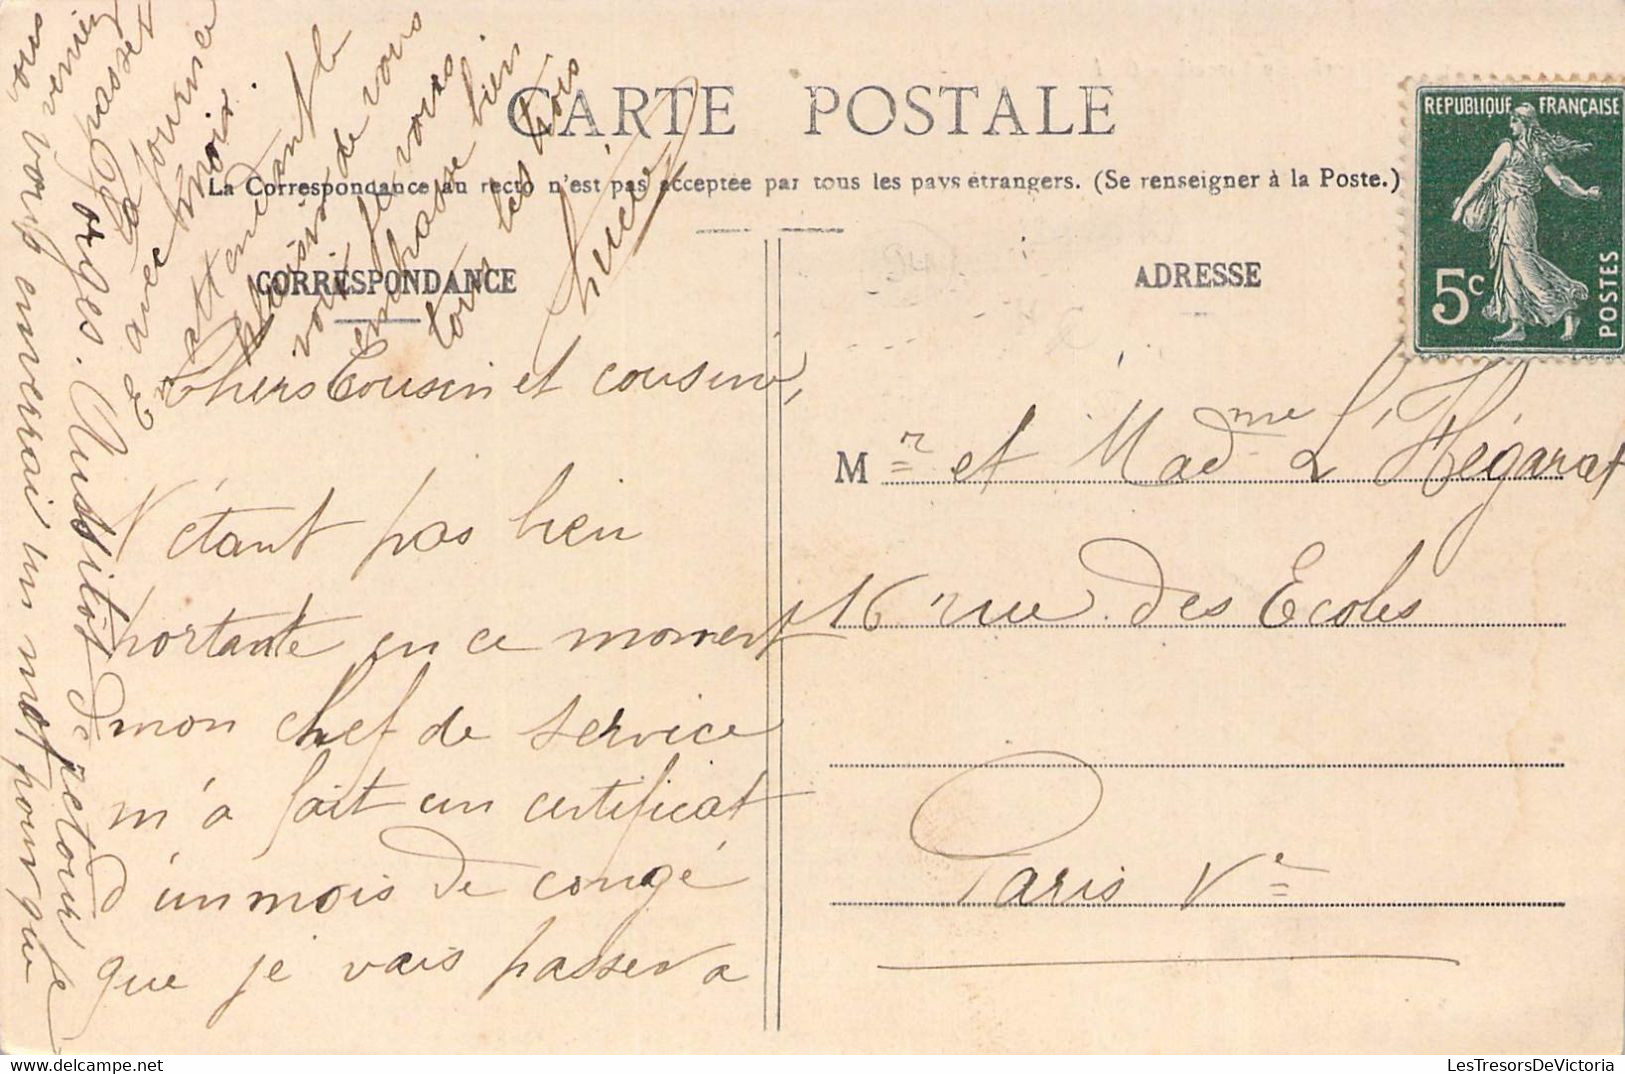 CARTE POSTALE
La Correspondance au recto n'est pas acceptée par tous les pays étrangers. (Se renseigner à la Poste.)
REPUBLIQUE FRANÇAISE
5c
POSTES
CORRESPONDANCE
ADRESSE
Chers Cousin et cousine,
N'étant pas bien
portante en ce moment
mon chef de service
m'a fait un certificat
d'un mois de congé
que je vais passer a
orges. Aussitôt de retour je
vous enverrai un mot pour que
vous veniez
passer
la journée
avec moi.
En attendant le
plaisir de vous
voir je vous
embrasse bien
tous les trois
Lucie
Mr et Madme L'Hégarat
16 rue des Ecoles
Paris Ve
LesTresorsDeVictoria